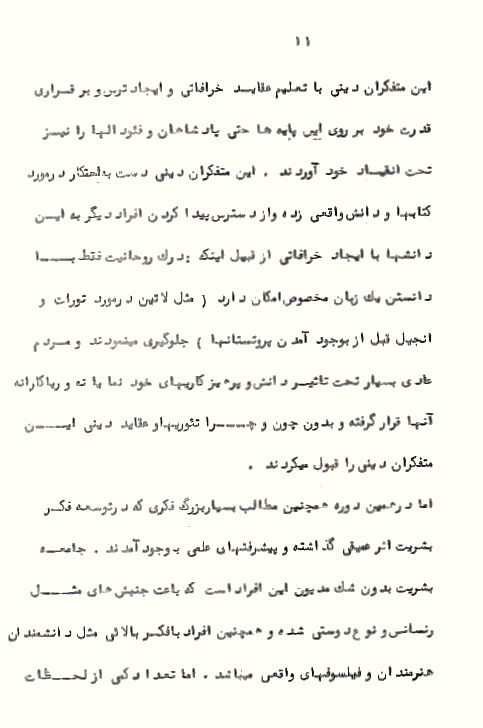 ۱۱
این متفکران دینی با تعلیم عقاید خرافاتی و ایجاد ترس و بر قراری
قدرت خود بر روی این پایه ها حتی پادشاهان و فئودالها را نیز
تحت انقیاد خود آوردند . این متفکران دینی دست به احتکار در مورد
کتابها و دانش واقعی زده و از دسترس پیدا کردن افراد دیگر به این
دانشها با ایجاد خرافاتی از قبیل اینکه : درك روحانیت فقط با
دانستن یك زبان مخصوص امکان دارد ( مثل لاتین در مورد تورات و
انجیل قبل از بوجود آمدن پروتستانها ) جلوگیری مینمودند و مردم
عادی بسیار تحت تاثیر دانش و پرهیز کاریهای خود نمایانه و ریاکارانه
آنها قرار گرفته و بدون چون و چرا تئوریها و عقاید دینی این
متفکران دینی را قبول میکردند .
اما در همین دوره همچنین مطالب بسیار بزرگ فکری که در توسعه فکر
بشریت اثر عمیقی گذاشته و پیشرفتهای علمی بوجود آمدند . جامعه
بشریت بدون شك مدیون این افراد است که باعث جنبش های مثل
رنسانس و نوع دوستی شده و همچنین افراد بافکر بالائی مثل دانشمندان
هنرمندان و فیلسوفهای واقعی میباشد . اما تعداد کمی از لحظات